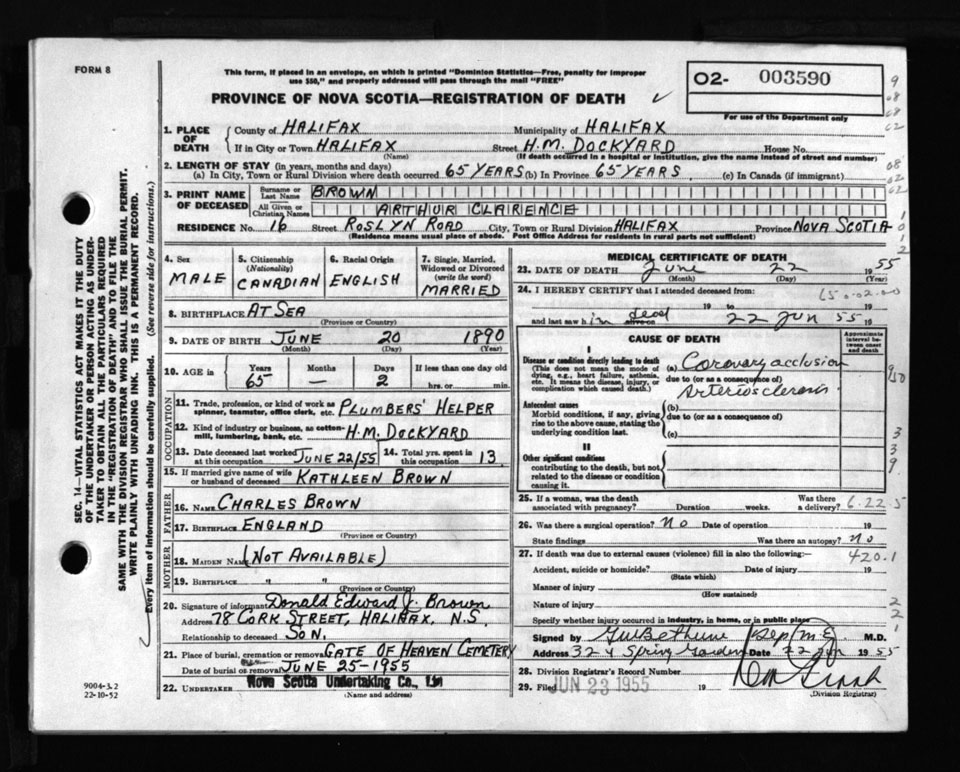 FORM 8
This form, if placed in an envelope, on which is printed "Dominion Statistics—Free, penalty for improper
use $50," and properly addressed will pass through the mail "FREE"
PROVINCE OF NOVA SCOTIA—REGISTRATION OF DEATH
O2- 003590
For use of the Department only
1. PLACE OF DEATH
County of HALIFAX Municipality of HALIFAX
If in City or Town HALIFAX Street H.M. DOCKYARD House No.
(Name) (If death occurred in a hospital or institution, give the name instead of street and number)
2. LENGTH OF STAY (in years, months and days)
(a) In City, Town or Rural Division where death occurred 65 YEARS (b) In Province 65 YEARS (c) In Canada (if immigrant)
3. PRINT NAME OF DECEASED
Surname or Last Name BROWN
All Given or Christian Names ARTHUR CLARENCE
RESIDENCE No. 16 Street ROSLYN ROAD City, Town or Rural Division HALIFAX Province NOVA SCOTIA
(Residence means usual place of abode. Post Office Address for residents in rural parts not sufficient)
4. Sex
MALE
5. Citizenship (Nationality)
CANADIAN
6. Racial Origin
ENGLISH
7. Single, Married, Widowed or Divorced (write the word)
MARRIED
8. BIRTHPLACE AT SEA
(Province or Country)
9. DATE OF BIRTH JUNE 20 1890
(Month) (Day) (Year)
10. AGE in Years 65 Months — Days 2 If less than one day old
hrs. or min.
OCCUPATION
11. Trade, profession, or kind of work as spinner, teamster, office clerk, etc. PLUMBERS' HELPER
12. Kind of industry or business, as cotton-mill, lumbering, bank, etc. H.M. DOCKYARD
13. Date deceased last worked at this occupation JUNE 22/55 14. Total yrs. spent in this occupation 13
15. If married give name of wife or husband of deceased KATHLEEN BROWN
FATHER
16. NAME CHARLES BROWN
17. BIRTHPLACE ENGLAND
(Province or Country)
MOTHER
18. MAIDEN NAME (NOT AVAILABLE)
19. BIRTHPLACE " "
(Province or Country)
20. Signature of informant Donald Edward J. Brown
Address 78 CORK STREET, HALIFAX, N.S.
Relationship to deceased SON.
21. Place of burial, cremation or removal GATE OF HEAVEN CEMETERY
Date of burial or removal JUNE 25-1955
22. UNDERTAKER Nova Scotia Undertaking Co., Ltd
(Name and address)
MEDICAL CERTIFICATE OF DEATH
23. DATE OF DEATH June 22 1955
(Month) (Day) (Year)
24. I HEREBY CERTIFY that I attended deceased from:
19 to 19
and last saw him dead alive on 22 Jun 1955
CAUSE OF DEATH
Approximate interval between onset and death
I
Disease or condition directly leading to death
(This does not mean the mode of dying, e.g., heart failure, asthenia, etc. It means the disease, injury, or complication which caused death.)
(a) Coronary occlusion
due to (or as a consequence of)
Arteriosclerosis
Antecedent causes
Morbid conditions, if any, giving rise to the above cause, stating the underlying condition last.
(b)
due to (or as a consequence of)
(c)
II
Other significant conditions
contributing to the death, but not related to the disease or condition causing it.
25. If a woman, was the death associated with pregnancy? Duration weeks. Was there a delivery?
6.22 5
26. Was there a surgical operation? No Date of operation 19
State findings Was there an autopsy? No
27. If death was due to external causes (violence) fill in also the following:—
420.1
Accident, suicide or homicide? Date of injury 19
(State which)
Manner of injury
(How sustained)
Nature of injury
Specify whether injury occurred in industry, in home, or in public place
Signed by GWBethune Dep M.E. M.D.
Address 324 Spring Garden Date 22 Jun 1955
28. Division Registrar's Record Number
29. Filed JUN 23 1955 19
(Division Registrar)
SEC. 14—VITAL STATISTICS ACT MAKES IT THE DUTY
OF THE UNDERTAKER OR PERSON ACTING AS UNDER-
TAKER TO OBTAIN ALL THE PARTICULARS REQUIRED
IN THE "REGISTRATION OF DEATH" AND TO FILE THE
SAME WITH THE DIVISION REGISTRAR WHO SHALL ISSUE THE BURIAL PERMIT.
WRITE PLAINLY WITH UNFADING INK. THIS IS A PERMANENT RECORD.
Every item of information should be carefully supplied. (See reverse side for instructions.)
9004-3.2
22-10-52